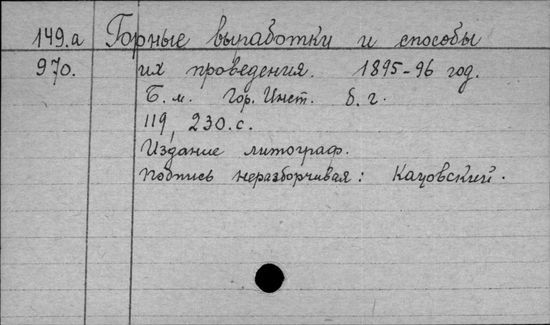 149.а Горные выработки и способы
970. их проведения. 1895-96 год.
Б. м. Гор. Инст. б. г.
119, 230.с.
Издание литограф.
Подпись неразборчивая: Кацовский.